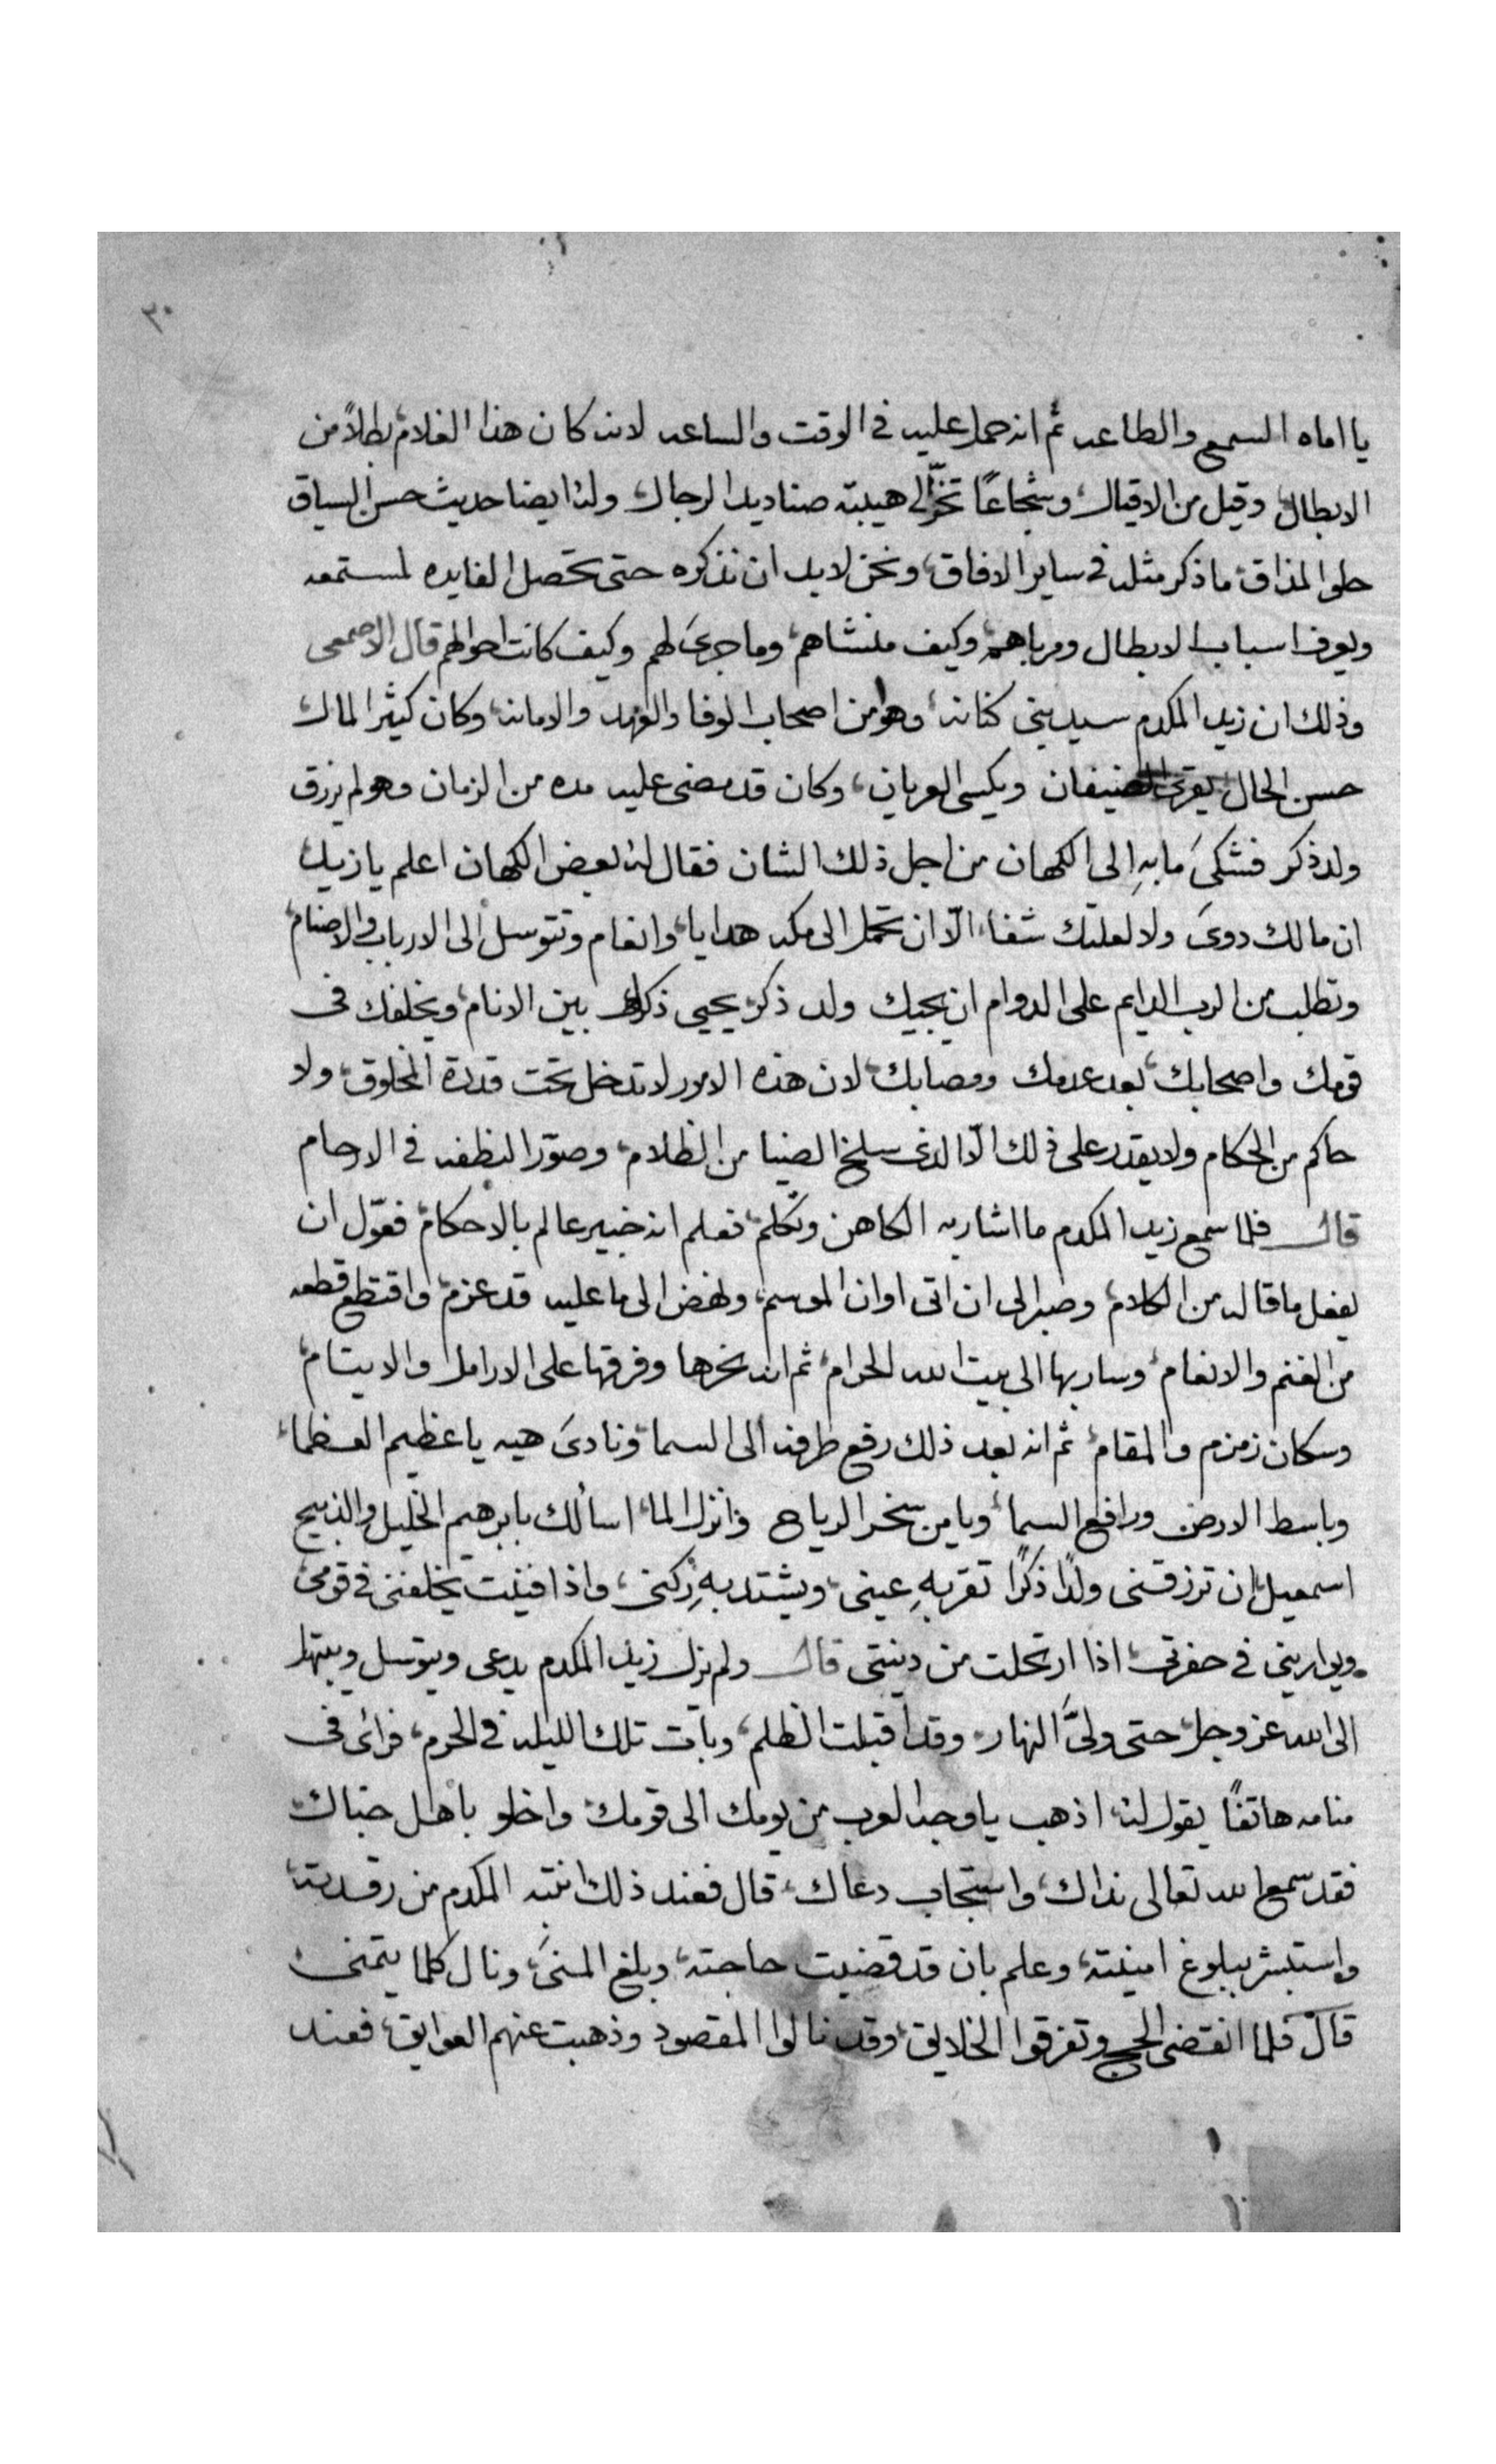 ٣٠
يا اماه السمع والطاعه ثم انه حمل عليه في الوقت والساعه لانه كان هذا الغلام بطلاً من
الابطال وقيل من الاقيال وشجاعًا تخرّ الى هيبته صناديد الرجال وله ايضا حديث حسن السياق
حلو المذاق ما ذكر مثله في ساير الافاق ونحن لابد ان نذكره حتى تحصل الفايده لمستمعه
ويعرف اسباب الابطال ومرباهم وكيف منشاهم وما جرى لهم وكيف كانت احوالهم قال الاصمعى
وذلك ان زيد المكدم سيد بني كنانه وهو من اصحاب الوفا والعهد والامانه وكان كثير المال
حسن الحال يقرى الضيفان ويكسى العريان وكان قد مضى عليه مده من الزمان وهو لم يرزق
ولد ذكر فشكى ما بهِ الى الكهان من اجل ذلك الشان فقال له بعض الكهان اعلم يا زيد
ان مالك دوى ولا لعلتك شفاء الّا ان تحمل الى مكه هدايا وانعام وتتوسل الى الارباب والاصنام
وتطلب من الرب الدايم على الدوام ان يجيك ولد ذكر يحيى ذكرك بين الانام ويخلفك فى
قومك واصحابك بعد عدمك ومصابك لان هذه الامور لا تدخل تحت قدرة المخلوق ولا
حاكم من الحكام ولا يقدر على ذلك الّا الذى سلخ الضيا من الظلام وصوّر النطفه في الارحام
قال فلما سمع زيد المكدم ما اشار به الكاهن وتكلم فعلم انه خبير عالم بالاحكام فعوّل ان
يفعل ما قاله من الكلام وصبر الى ان اتى اوان الموسم ونهض الى ما عليه قد عزم واقتطع قطعه
من الغنم والانعام وسار بها الى بيت الله الحرام ثم انه نحرها وفرقها على الارامل والايتام
وسكان زمزم والمقام ثم انه بعد ذلك رفع طرفه الى السما ونادى هيه يا عظيم العظماء
وباسط الارض ورافع السماء ويا من سخر الرياح وانزل الماء اسألك بابرهيم الخليل والذبيح
اسمعيل ان ترزقنى ولدًا ذكرًا تقر بهِ عينى ويشتد بهِ ركنى واذا فنيت يخلفنى في قومى
ويواريني في حفرتى اذا ارتحلت من دينتى قال ولم يزل زيد المكدم يدعى ويتوسل ويبتهل
الى الله عز وجل حتى ولّى النهار وقد اقبلت الظلم وبات تلك الليله في الحرم فرائ فى
منامه هاتفًا يقول له اذهب يا وجه العرب من يومك الى قومك واخلو باهل حباك
فقد سمع الله تعالى نداك واستجاب دعاك قال فعند ذلك انتبه المكدم من رقدته
واستبشر ببلوغ امنيته وعلم بان قد قضيت حاجته وبلغ المنى ونال كلما يتمنى
قال فلما انقضى الحج وتفرقوا الخلايق وقد نالوا المقصود وذهبت عنهم العوايق فعند